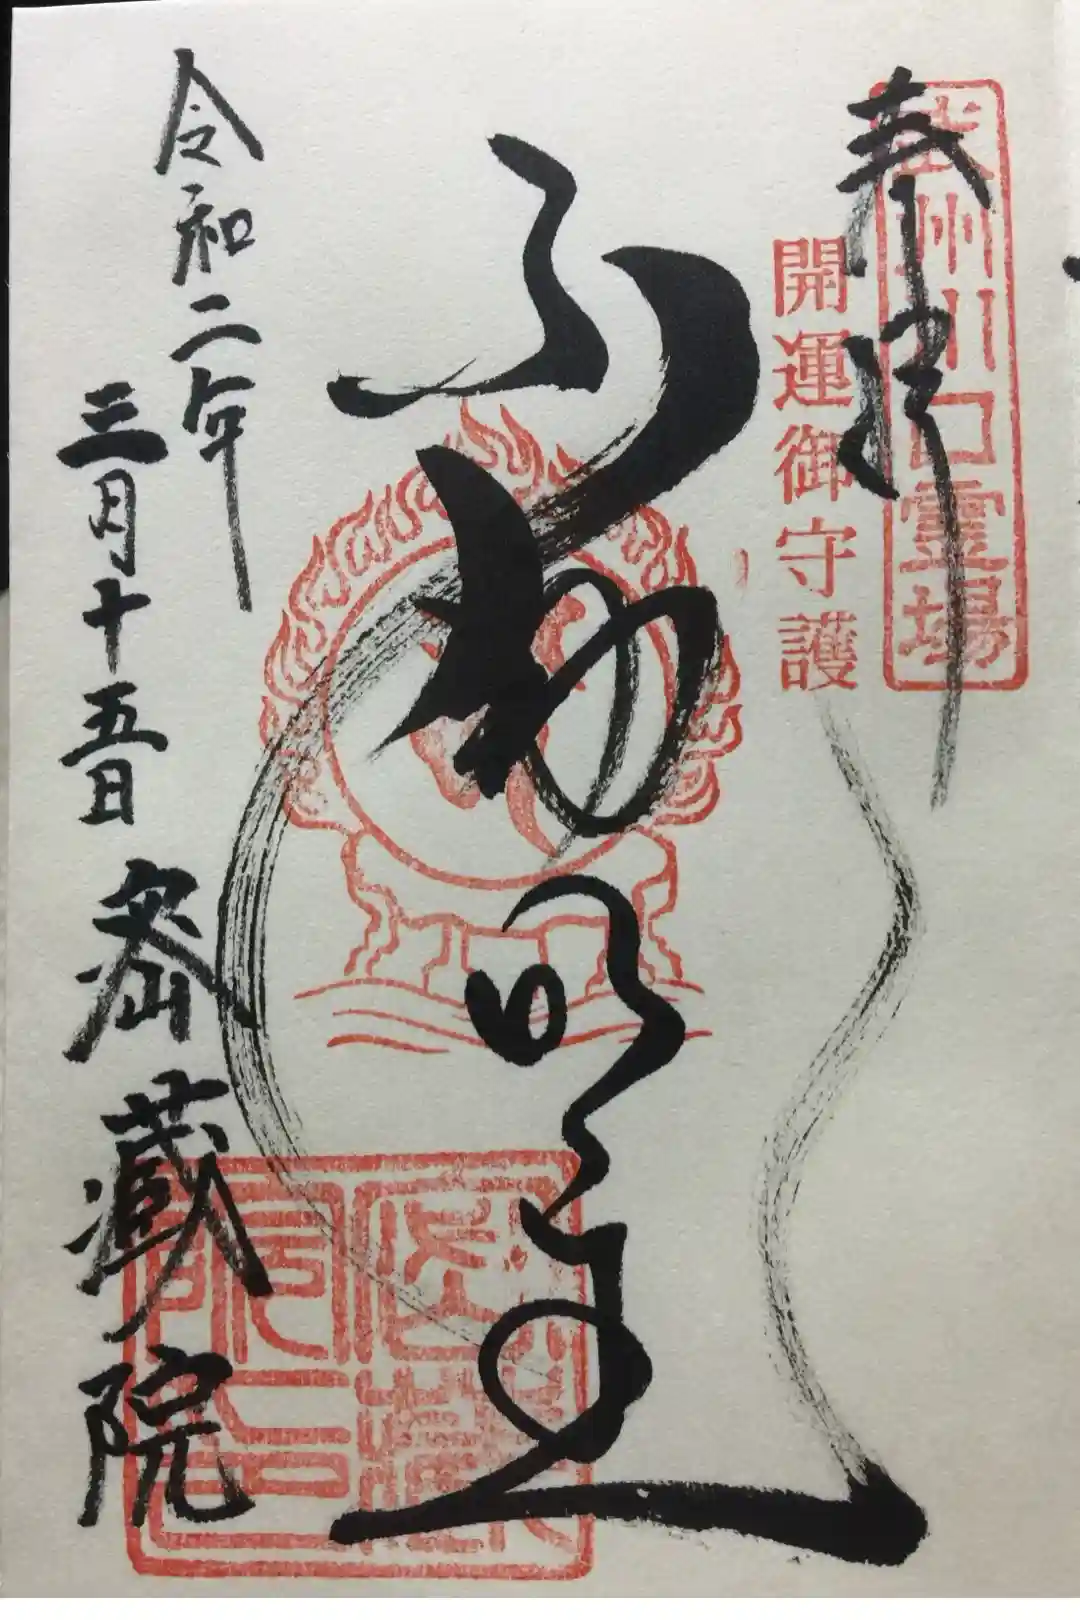 奉拝
武州川口霊場
開運御守護
不動明王
令和二年
三月十五日 密蔵院